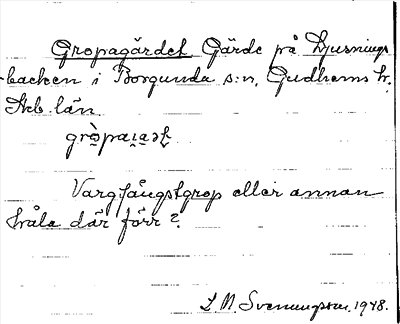 Gropagärdet Gärde på Ljusnings-
backen i Borgunda s:n, Gudhems hr,
Skb. län.
Vargfångstgrop eller annan
håla där förr?
S M Svenungsson. 1948.